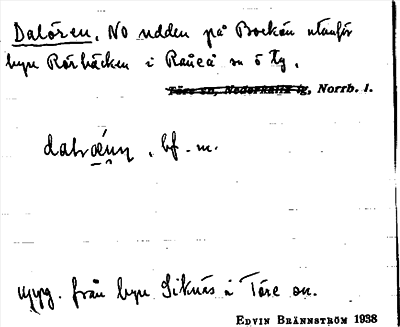 Dalören. NO udden på Bockön utanför
byn Rörbäcken i Råneå sn ö tg.
Töre sn, Nederkalix tg, Norrb. l.
bf. m.
uppg. från byn Siknäs i Töre sn.
EDVIN BRÄNNSTRÖM 1938